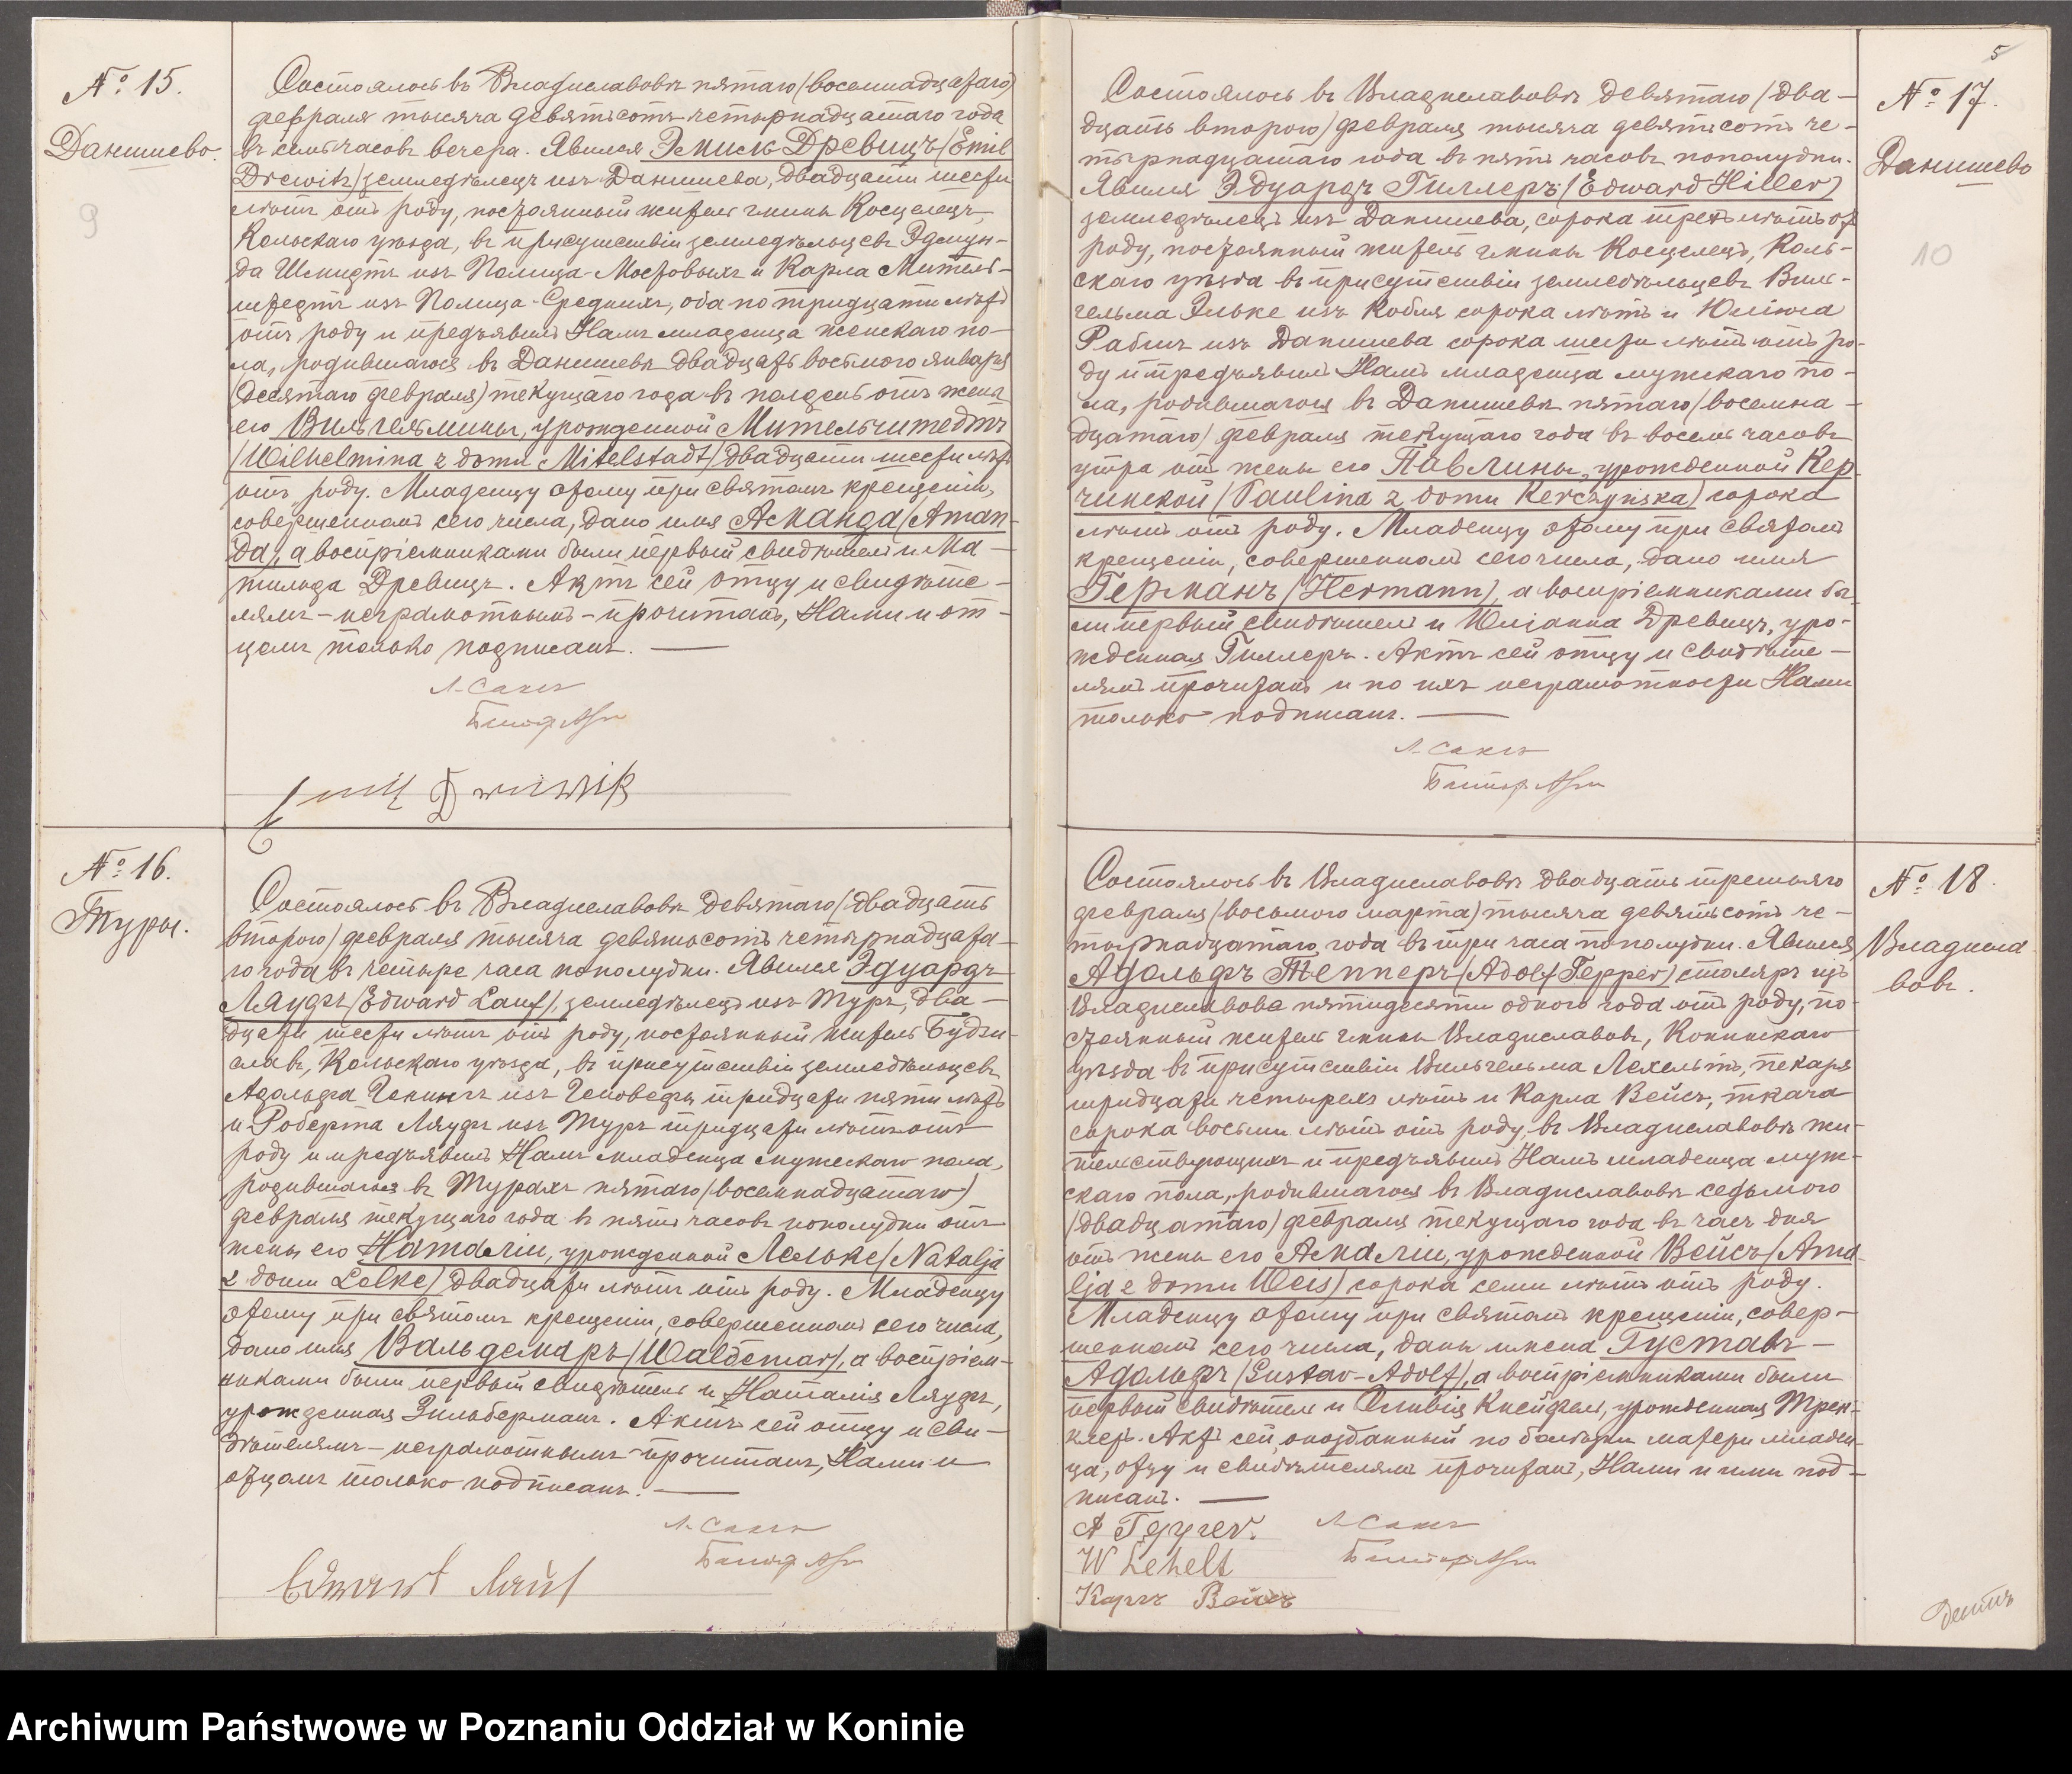 № 15.
Данишево.
9
Состоялось въ Владиславовѣ пятаго/восемнадцатаго/
февраля тысяча девятьсотъ четырнадцатаго года
въ семь часовъ вечера. Явился Эмиль Древицъ/Emil
Drewitz/земледѣлецъ изъ Данишева, двадцати шести
лѣтъ отъ роду, постоянный житель гмины Косцелецъ,
Кольскаго уѣзда, въ присутствіи земледѣльцевъ Эдмун-
да Шмидтъ изъ Полица-Мостовыхъ и Карла Митель-
штедтъ изъ Полица-Среднихъ, оба по тридцати лѣтъ
отъ роду и предъявилъ Намъ младенца женскаго по-
ла, родившагося въ Данишевѣ двадцать восьмого января
(десятаго февраля) текущаго года въ полдень отъ жены
его Вильгельмины, урожденной Мительштедтъ
/Wilhelmina z domu Mitelstadt/двадцати шести лѣтъ
отъ роду. Младенцу этому при святомъ крещеніи,
совершенномъ сего числа, дано имя Аманда/Aman-
da/, а воспріемниками были первый свидѣтель и Ма-
тильда Древицъ. Актъ сей отцу и свидѣте-
лямъ-неграмотнымъ-прочитанъ, Нами и от-
цемъ только подписанъ.
Emil Drewitz
№ 16.
Туры.
Состоялось въ Владиславовѣ девятаго/двадцать
второго/февраля тысяча девятьсотъ четырнадцата-
го года въ четыре часа пополудни. Явился Эдуардъ
Ляуфъ/Edward Lauf/, земледѣлецъ изъ Туръ, два-
дцати шести лѣтъ отъ роду, постоянный житель Будзи-
славъ, Кольскаго уѣзда, въ присутствіи земледѣльцевъ
Адольфа изъ Геновефы тридцати пяти лѣтъ
и Роберта Ляуфъ изъ Туръ тридцати лѣтъ отъ
роду и предъявилъ Намъ младенца мужескаго пола,
родившагося въ Турахъ пятаго/восемнадцатаго/
февраля текущаго года въ пять часовъ пополудни отъ
жены его Наталіи, урожденной Лельке/Natalja
z domu Lelke/двадцати лѣтъ отъ роду. Младенцу
этому при святомъ крещеніи, совершенномъ сего числа,
дано имя Вальдемаръ/Waldemar/, а воспріем-
никами были первый свидѣтель и Наталія Ляуфъ,
урожденная Зильберманъ. Актъ сей отцу и сви-
дѣтелямъ-неграмотнымъ-прочитанъ, Нами и
отцомъ только подписанъ.
Edward Lauf
5
№ 17.
Данишево
10
Состоялось въ Владиславовѣ девятаго/два-
дцать второго/февраля тысяча девятьсотъ че-
тырнадцатаго года въ пять часовъ пополудни.
Явился Эдуардъ Гиллеръ/Edward Hiller/
земледѣлецъ изъ Данишева, сорока трехъ лѣтъ от
роду, постоянный житель гмины Косцелецъ, Коль-
скаго уѣзда въ присутствіи земледѣльцевъ Виль-
гельма Эльке изъ Кобыля сорока лѣтъ и Юліюса
Рабицъ изъ Данишева сорока шести лѣтъ отъ ро-
ду и предъявилъ Намъ младенца мужскаго по-
ла, родившагося въ Данишевѣ пятаго/восемна-
дцатаго/ февраля текущаго года въ восемь часовъ
утра отъ жены его Павлины, урожденной Кер-
чинской/Paulina z domu Kerczyńska/сорока
лѣтъ отъ роду. Младенцу этому при святомъ
крещеніи, совершенномъ сего числа, дано имя
Германъ/Hermann/, а воспріемниками бы-
ли первый свидѣтель и Юліанна Древицъ, уро-
жденная Гиллеръ. Актъ сей отцу и свидѣте-
лямъ прочитанъ и по ихъ неграмотности Нами
только подписанъ.
№ 18.
Владисла
вовъ.
Состоялось въ Владиславовѣ двадцать третьяго
февраля/восьмого марта/тысяча девятьсотъ че-
тырнадцатаго года въ три часа пополудни. Явился
Адольфъ Тепперъ/Adolf Tepper/столяръ изъ
Владиславова пятидесяти одного года отъ роду, по-
стоянный житель гмины Владиславовъ, Конинскаго
уѣзда въ присутствіи Вильгельма Лехельтъ, пекаря
тридцати четырехъ лѣтъ и Карла Вейсъ, ткача
сорока восьми лѣтъ отъ роду, въ Владиславовѣ жи-
тельствующихъ и предъявилъ Намъ младенца муж-
скаго пола, родившагося въ Владиславовѣ седьмого
/двадцатаго/февраля текущаго года въ часъ дня
отъ жены его Амаліи, урожденной Вейсъ/Ama-
lja z domu Weis/сорока семи лѣтъ отъ роду.
Младенцу этому при святомъ крещеніи, совер-
шенномъ сего числа, даны имена Густавъ-
Адольфъ/Gustav-Adolf/, а воспріемниками были
первый свидѣтель и Оливія Кнейфель, урожденная Трен-
клеръ. Актъ сей, опозданный по болѣзни матери младен-
ца, отцу и свидѣтелямъ прочитанъ, Нами и ими под-
писанъ.
A Tepper.
W Lehelt
Карлъ Вейсъ
Archiwum Państwowe w Poznaniu Oddział w Koninie